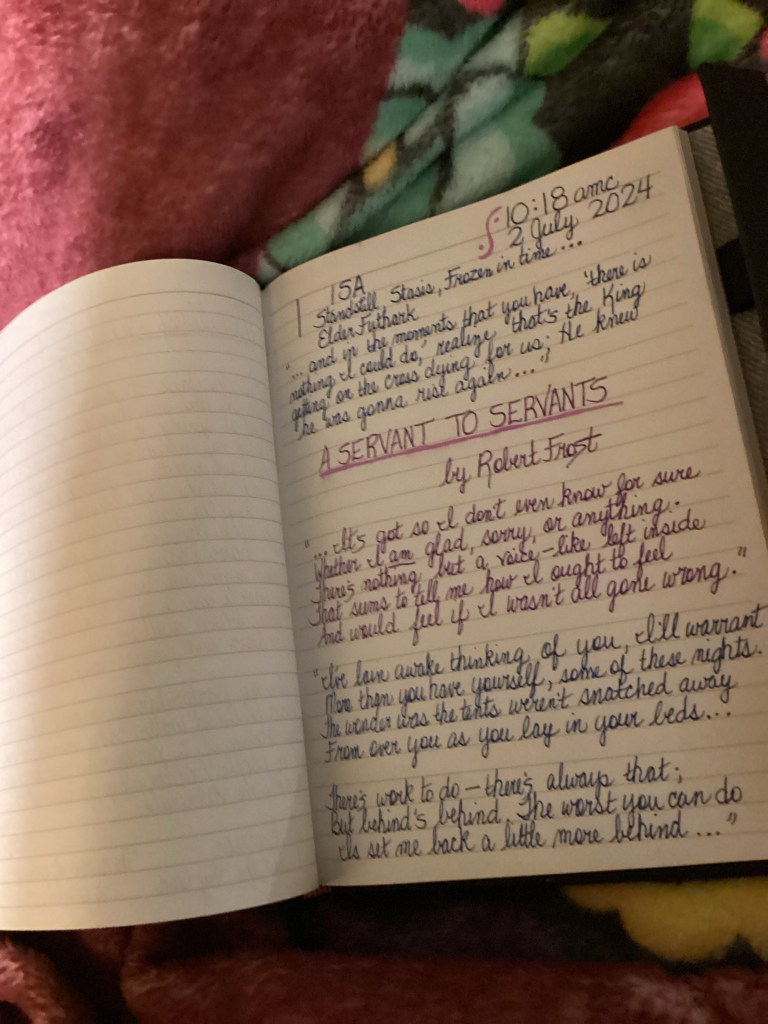 10:18 amc
2 July 2024
| ISA
Standstill, Stasis, Frozen in time...
Elder Futhark
"... and in the moments that you have, 'there is
nothing I could do,' realize that's the King
getting on the cross dying for us; He knew
he was gonna rise again..."
A SERVANT TO SERVANTS
by Robert Frost
"... It's got so I don't even know for sure
Whether I am glad, sorry, or anything.
There's nothing but a voice-like left inside
That seems to tell me how I ought to feel
And would feel if I wasn't all gone wrong."
"I've lain awake thinking of you, I'll warrant
More than you have yourself, some of these nights.
The wonder was the tents weren't snatched away
From over you as you lay in your beds...
There's work to do – there's always that;
But behind's behind. The worst you can do
Is set me back a little more behind..."